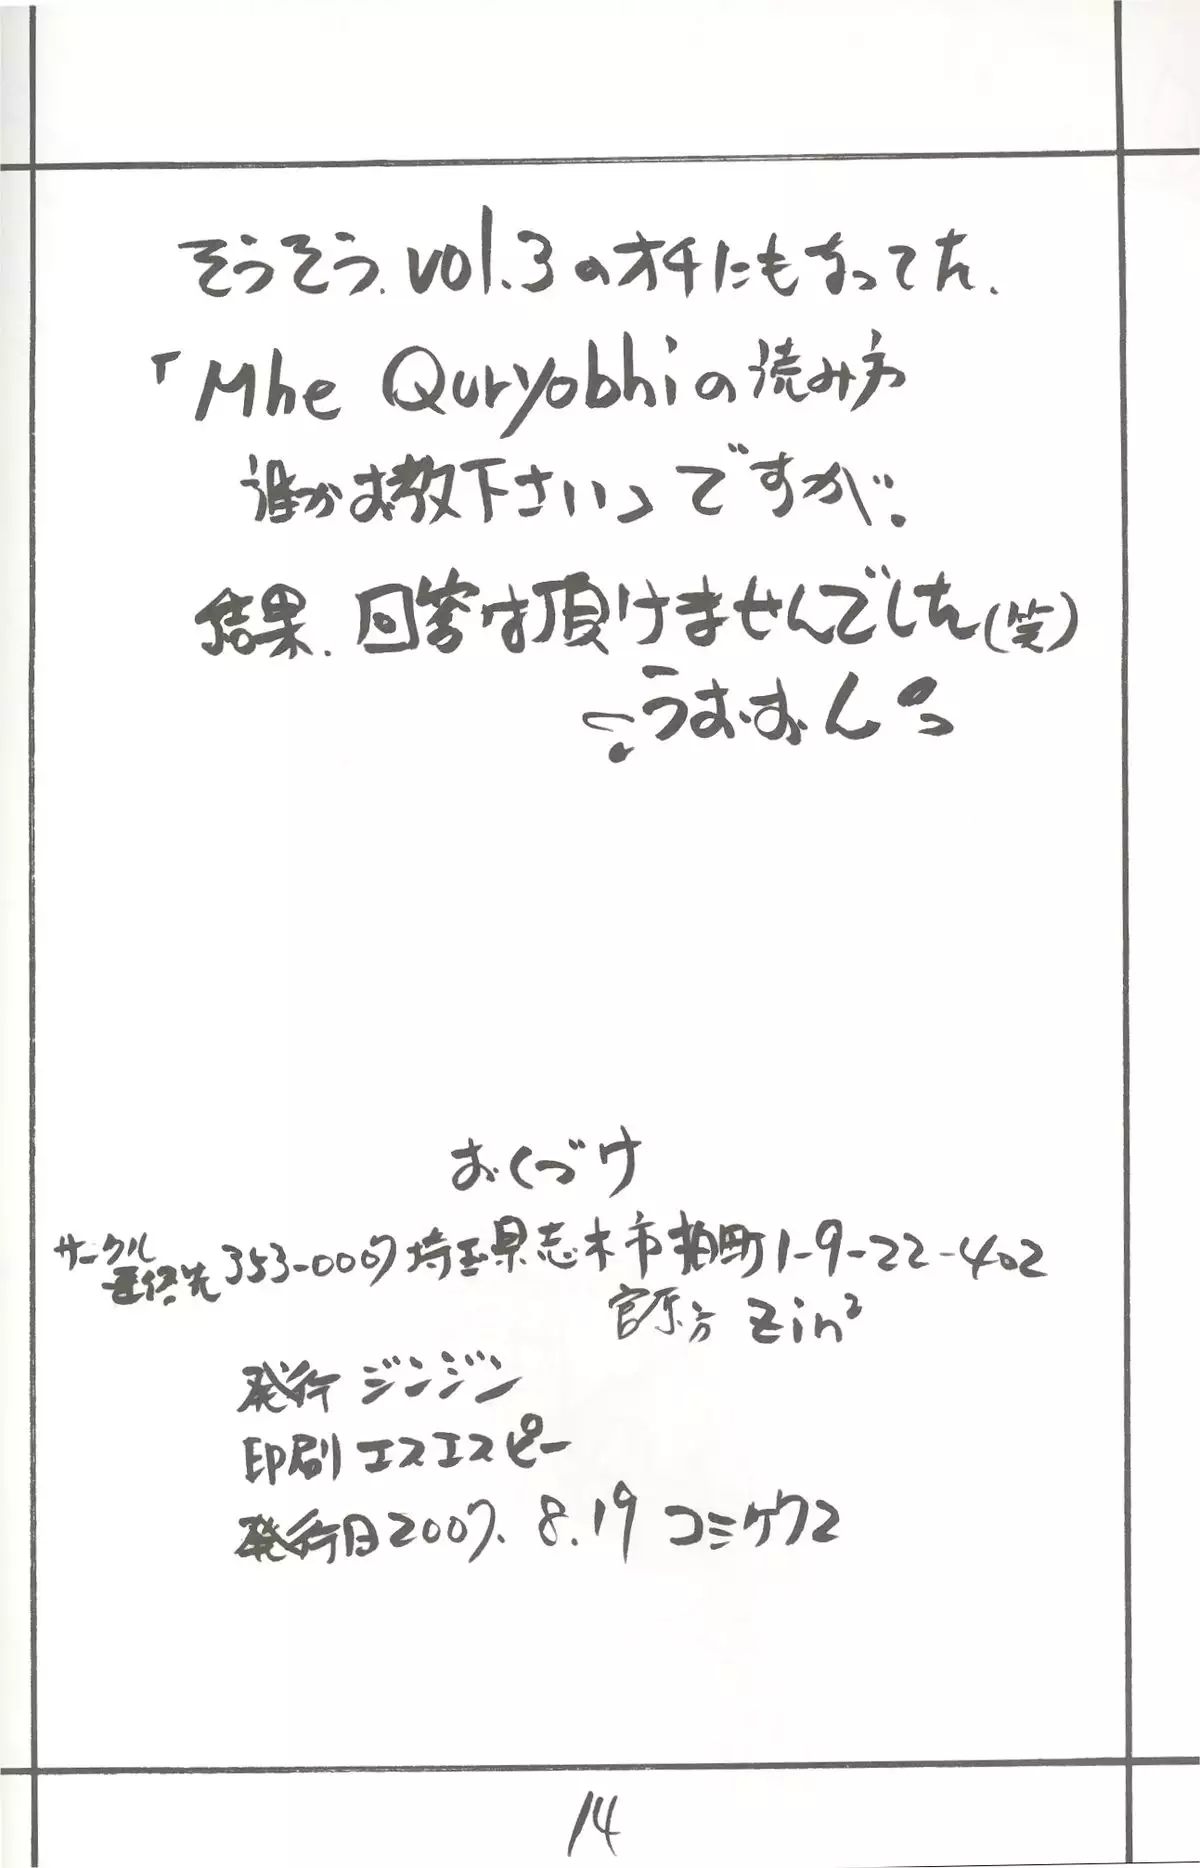 そうそう. vol.3のオチにもなってた、
「Mhe Quryobhiの読み方
誰かお教下さい」ですが。
結果、回答は頂けませんでした(笑)
うおおん
おくづけ
サークル
連絡先 353-0007 埼玉県志木市柏町1-9-22-402
宮原方 Zin²
発行 ジンジン
印刷 エスエスピー
発行日 2007. 8.19 コミケ72
14